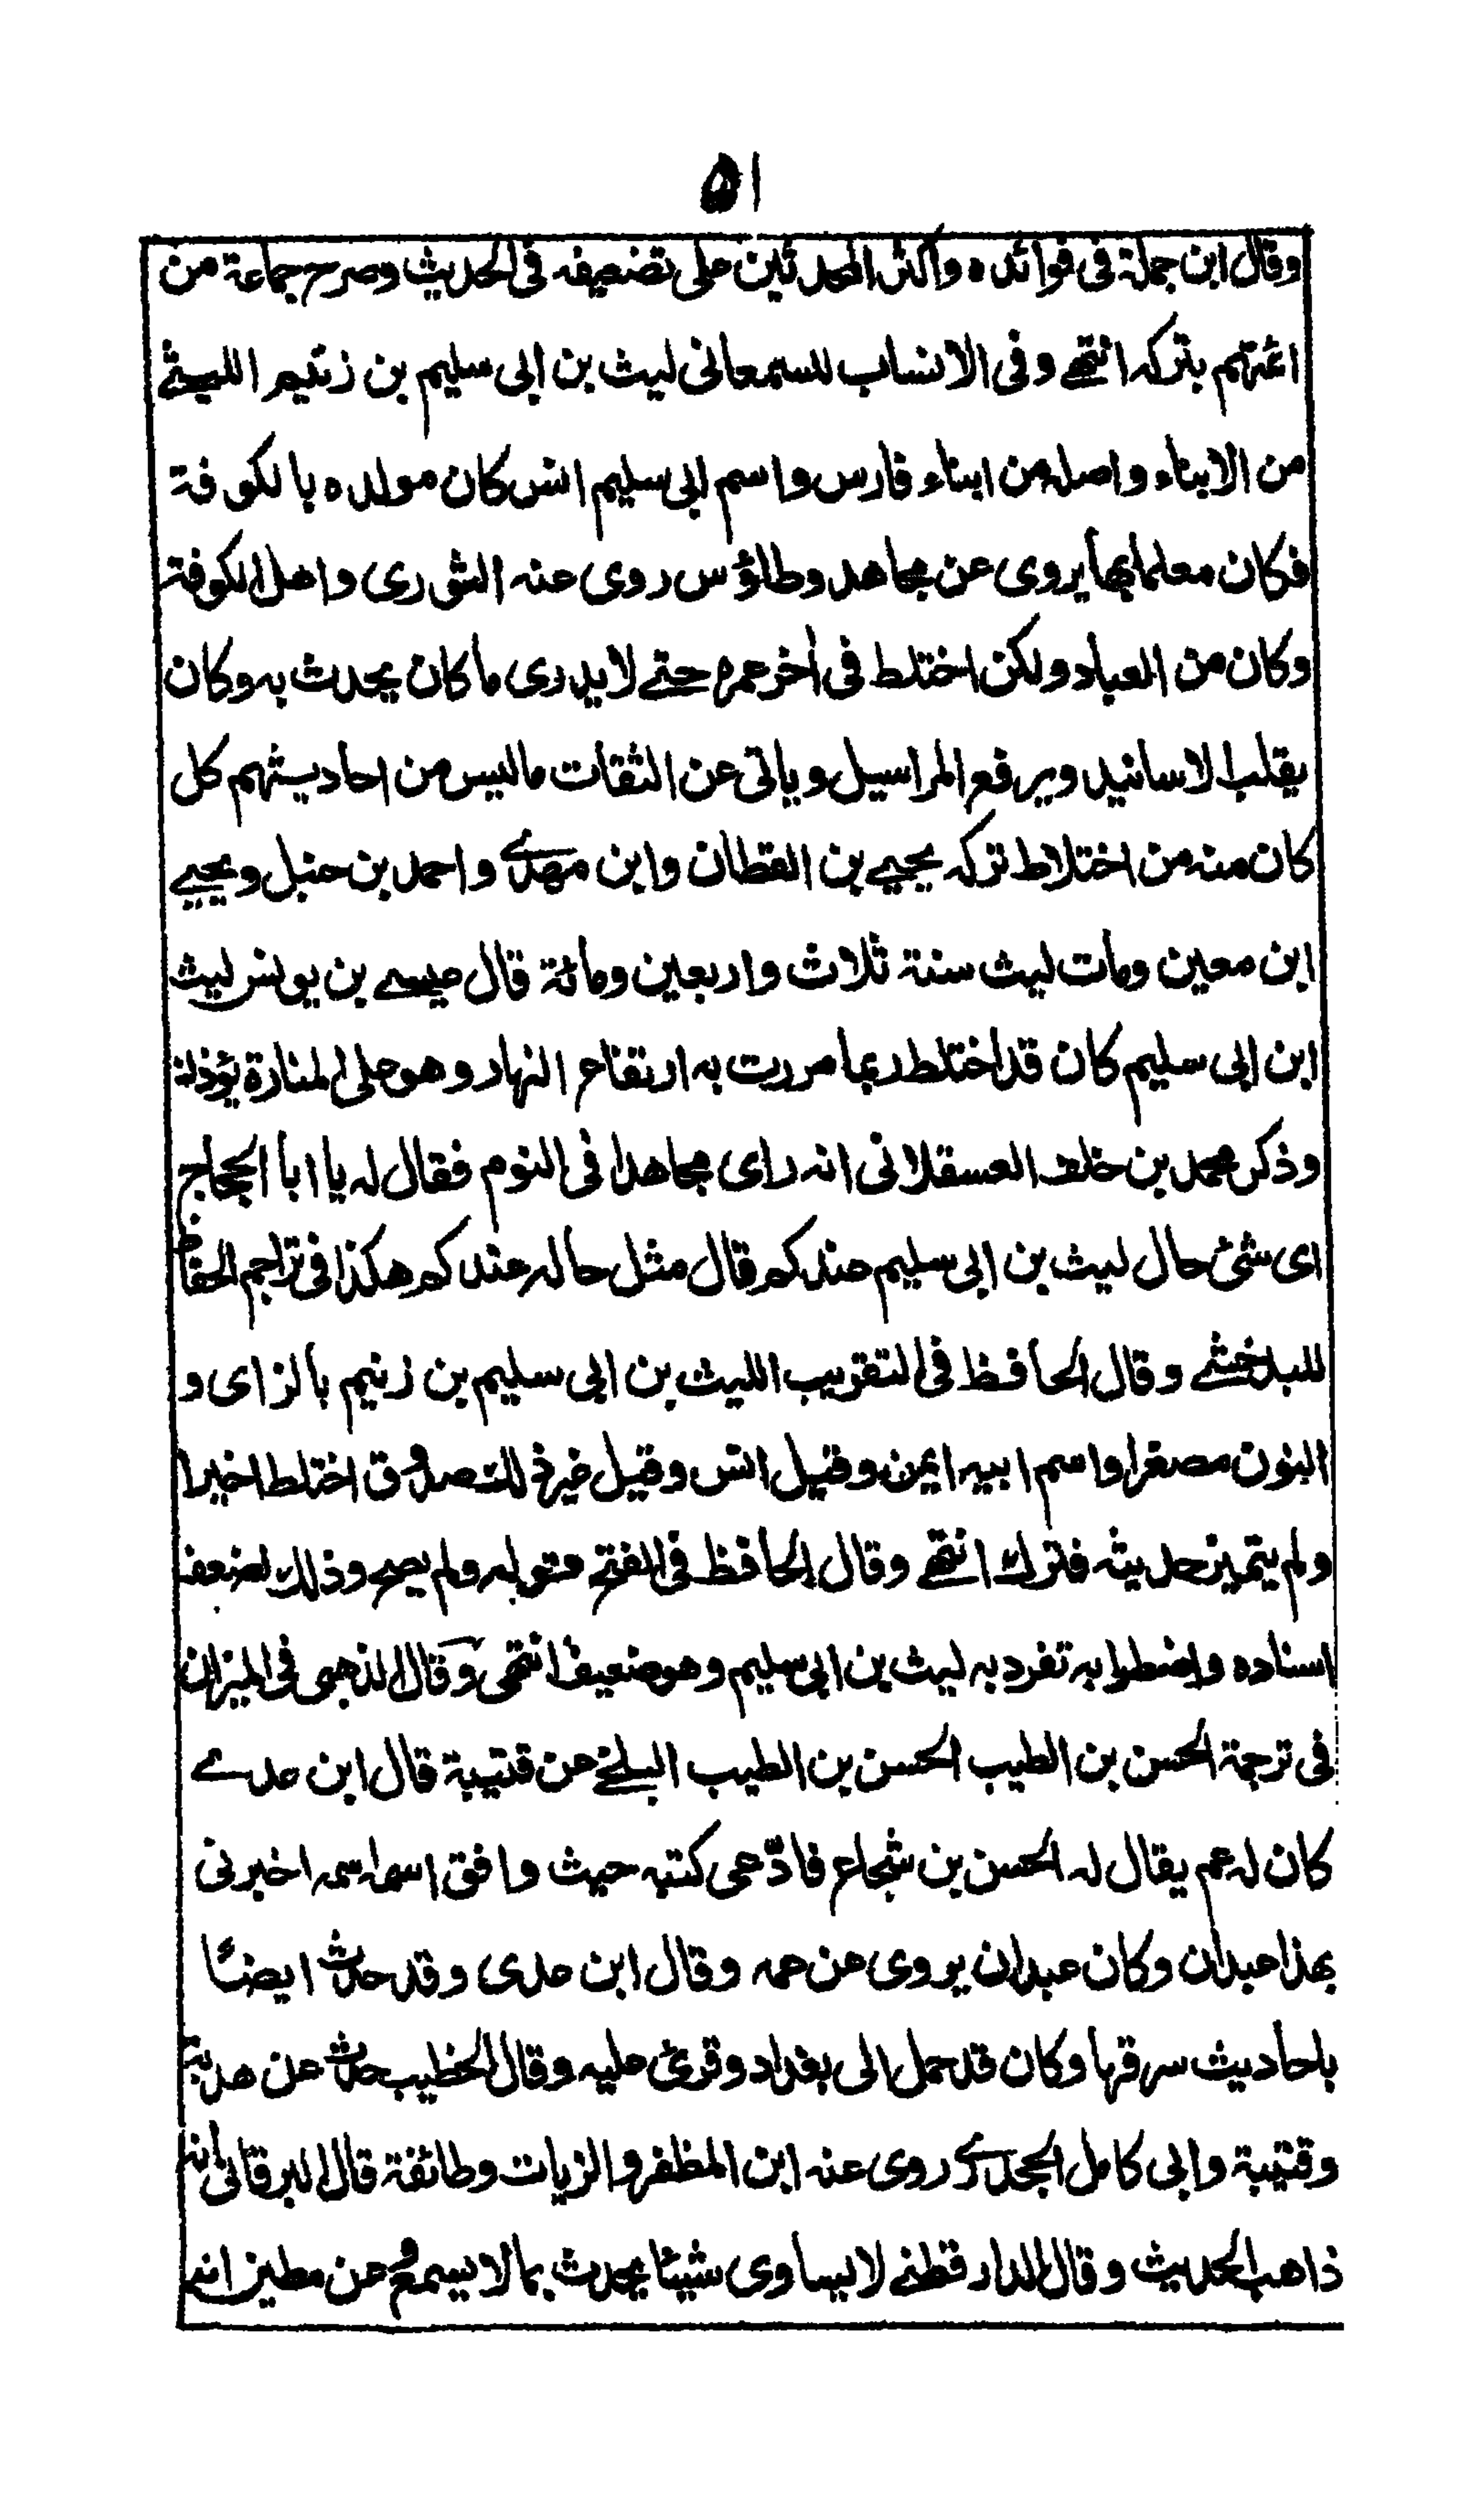 ٥١
وقال ابن جملة فى فوائده واكثر المحدثين على تضعيفه فى الحديث وصرح جماعة من
ائمتهم بتركه انتهے وفى الانساب للسمعانى ليث بن ابى سليم بن زنيم الليثے
من الابناء واصله من ابناء فارس واسم ابى سليم انس كان مولده بالكوفة
فكان معلما بها يروى عن مجاهد وطاؤس روى عنه الثورى واهل الكوفة
وكان من العباد ولكن اختلط فى اخر عمره حتے لا يدرى ما كان يحدث به وكان
يقلب الاسانيد ويرفع المراسيل وياتى عن الثقات ما ليس من احاديثهم كل
كان منه من اختلاط تركه يحيے بن القطان وابن مهدے واحمد بن حنبل ويحيے
ابن معين ومات ليث سنة ثلاث واربعين ومائة قال عيسے بن يونس ليث
ابن ابى سليم كان قد اختلط ربما مررت به ارتفاع النهار وهو على المنارة يؤذن
وذكر محمد بن خلف العسقلانى انه راى مجاهدا فى النوم فقال له يا ابا الحجاج
اى شئ حال ليث بن ابى سليم عندكم قال مثل حاله عندكم هكذا فى تراجم الحفاظ
للبدخشے وقال الحافظ فى التقريب الليث بن ابى سليم بن زنيم بالزاى و
النون مصغرا واسم ابيه ايمن وقيل انس وقيل غير ذلك صدوق اختلط اخيرا
ولم يتميز حديثه فترك انتهے وقال الحافظ فى الفتح قوله ولم يصح وذلك لضعف
اسناده واضطرابه تفرد به ليث بن ابى سليم وهو ضعيف انتهى وقال الذهبى فى الميزان
فى ترجمة الحسن بن الطيب الحسن بن الطيب البلخے عن قتيبة قال ابن عدے
كان له عم يقال له الحسن بن شجاع فادّعى كتبه حيث وافق اسمه اخبرنى
بهذا عبدان وكان عبدان يروى عن عمه وقال ابن عدى وقد حدث ايضًا
باحاديث سرقها وكان قد حمل الى بغداد وقرئ عليه وقال الخطيب حدث عن هدبة
وقتيبة وابى كامل الجحدرے روى عنه ابن المظفر والزيات وطائفة قال البرقانى انه
ذاهب الحديث وقال الدارقطنے لا يساوى شيئا يحدث بما لا يسمع عن مطين انه